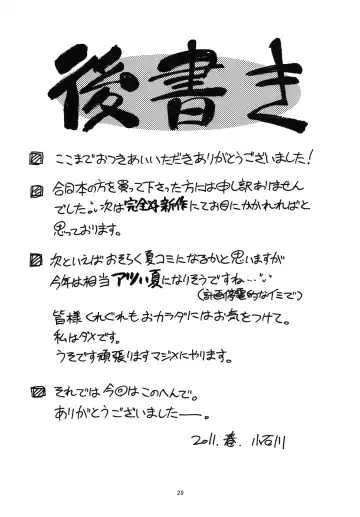 後書き
ここまでおつきあいいただきありがとうございました!
合同本の方を買って下さった方には申し訳ありません
でした。次は完全な新作にてお目にかかれればと
思っております。
次といえばおそらく夏コミになるかと思いますが
今年は相当アツい夏になりそうですね…
(計画停電的なイミで)
皆様くれぐれもおカラダにはお気をつけて。
私はダメです。
うそです頑張りますマジメにやります。
それでは今回はこのへんで。
ありがとうございましたー。
2011.春. 小石川
29